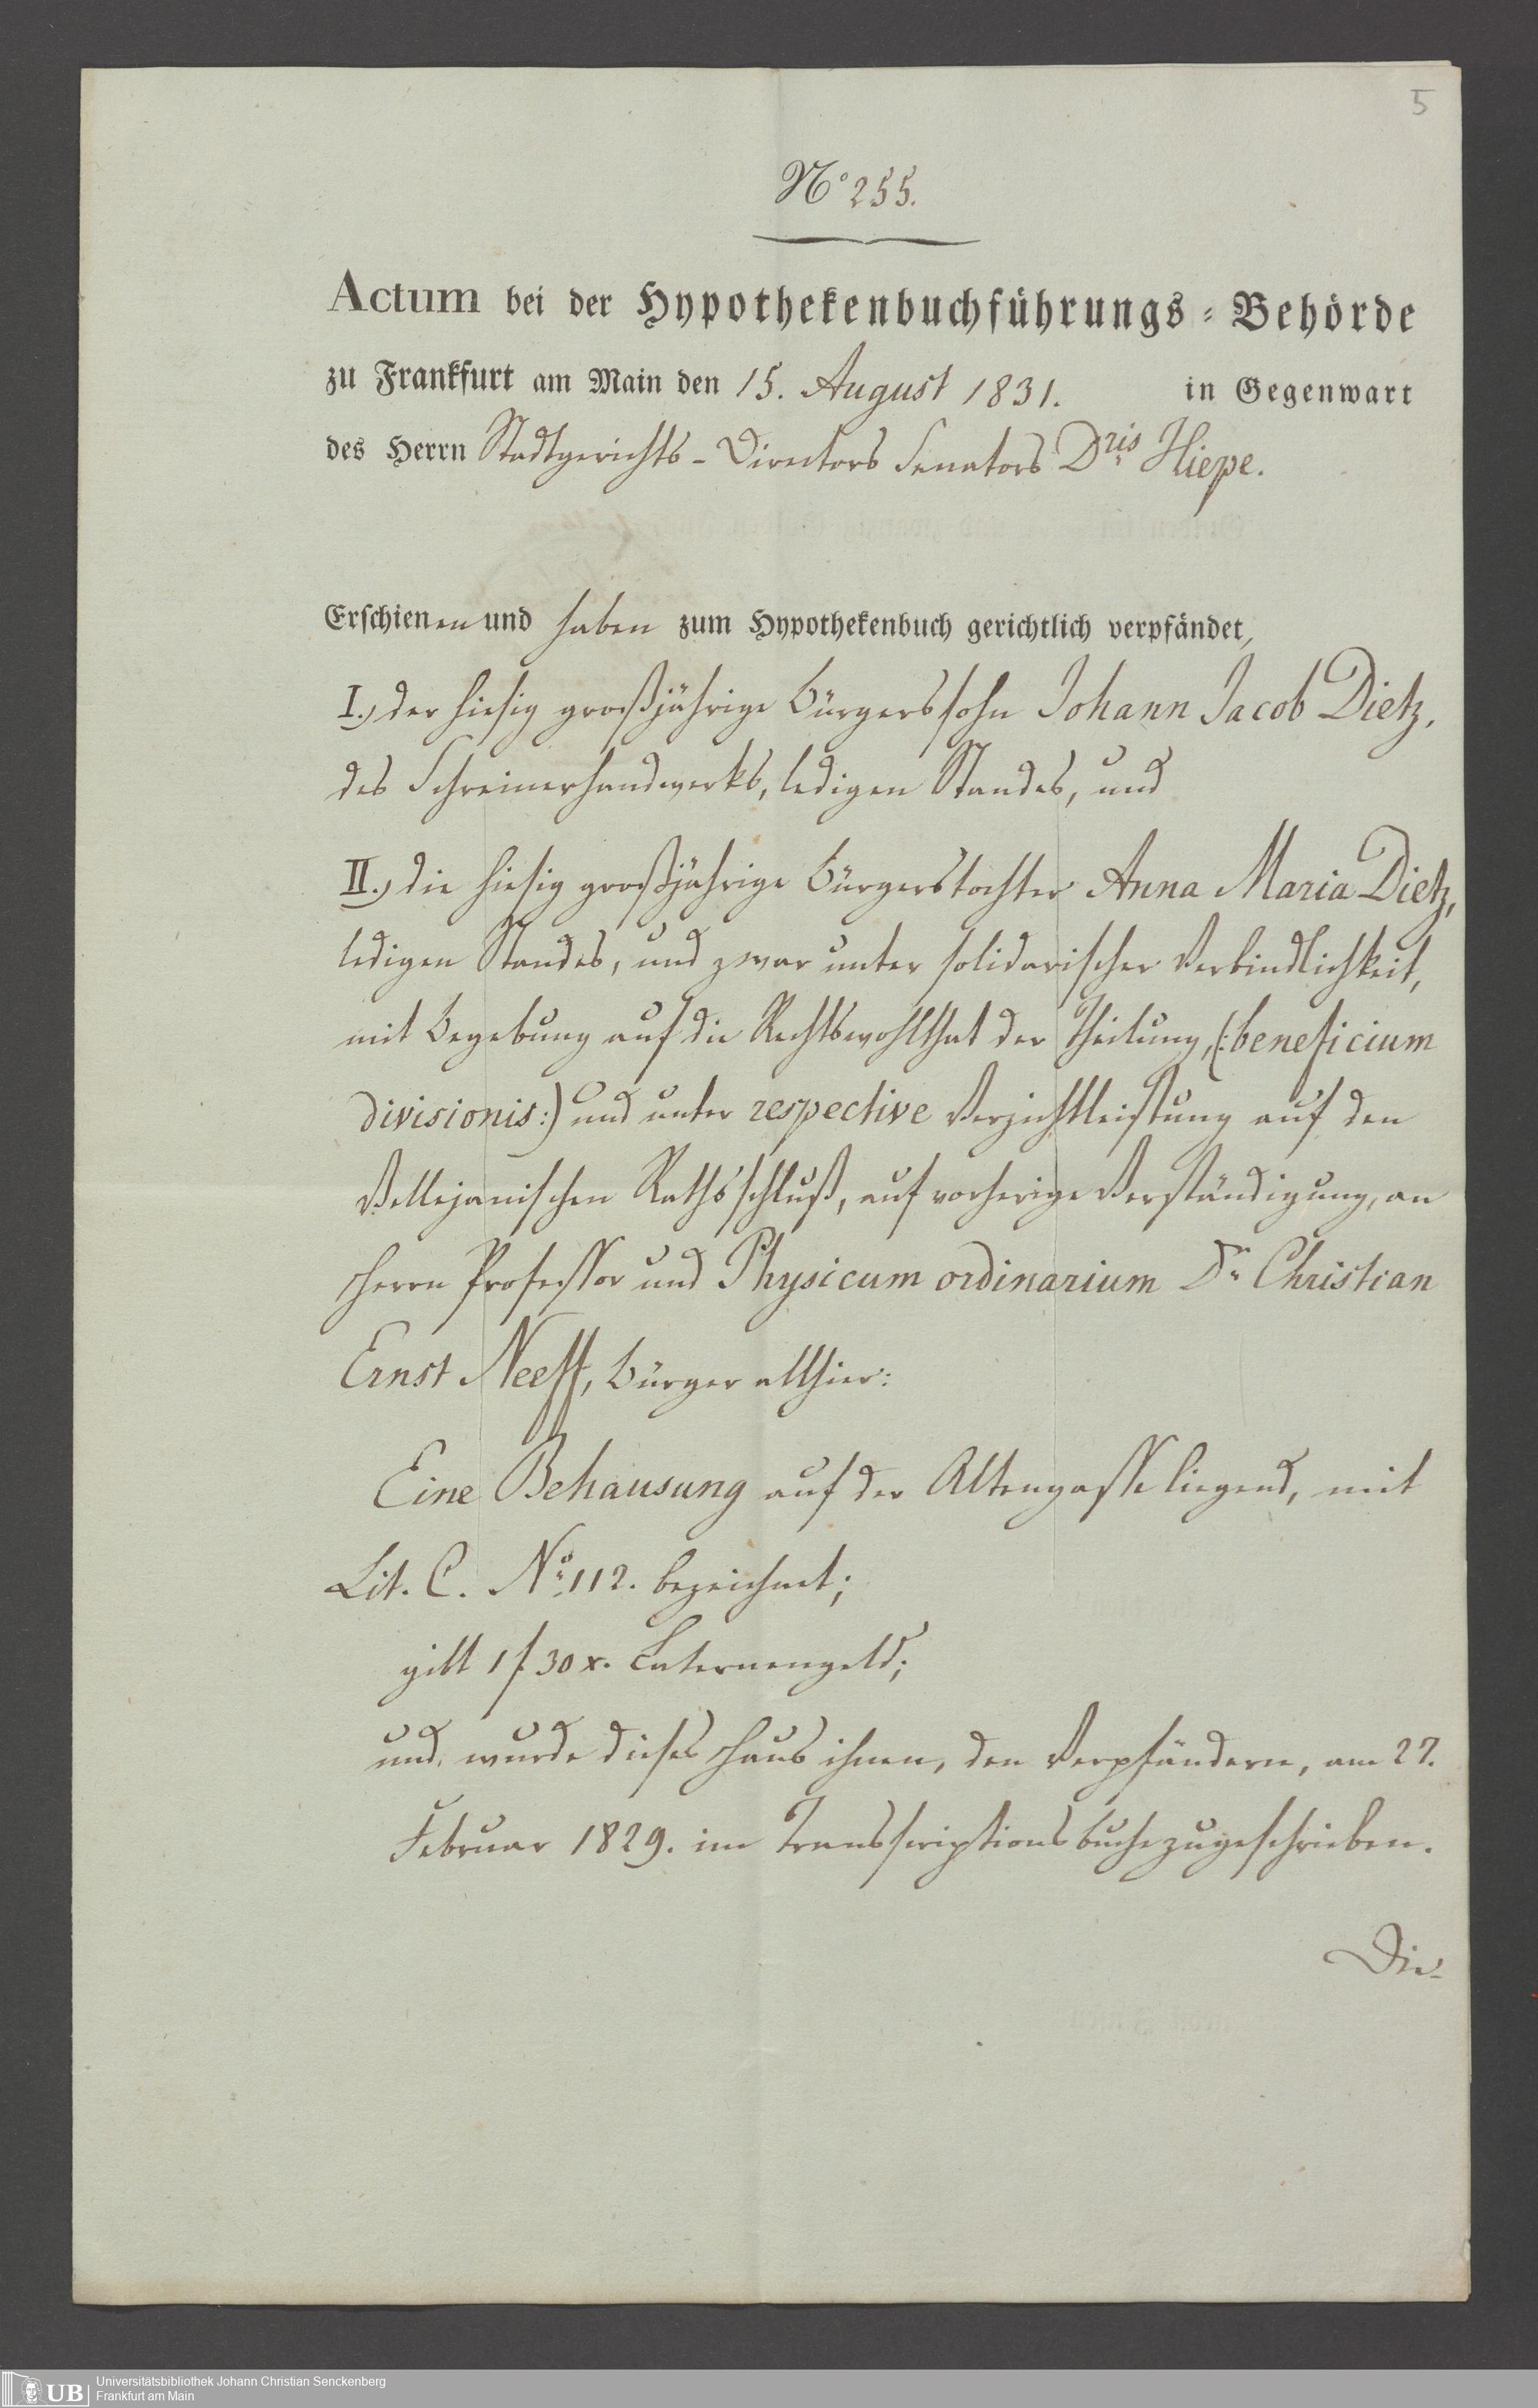 5
No 255.
Actum bei der Hypothekenbuchführungs-Behörde
zu Frankfurt am Main den 15. August 1831. in Gegenwart
des Herrn Stadtgerichts-Directors Senators Dris Hiepe.
Erschienen und haben zum Hypothekenbuch gerichtlich verpfändet,
I., der hiesig großjährige Bürgerssohn Johann Jacob Dietz,
des Schreinerhandwerks, ledigen Standes, und
II., die hiesig großjährige Bürgerstochter Anna Maria Dietz,
ledigen Standes, und zwar unter solidarischer Verbindlichkeit,
mit Begebung auf die Rechtswohlthat der Theilung, (:beneficium
divisionis:) und unter respective Verzichtleistung auf den
Vellejanischen Rathsschluß, auf vorherige Verständigung, an
Herrn Professor und Physicum ordinarium Dr Christian
Ernst Neeff, Bürger allhier:
Eine Behausung auf der Altengasse liegend, mit
Lit. C. No 112. bezeichnet;
gilt 1 f 30 x. Laternengeld;
und wurde dieses Haus ihnen, den Verpfändern, am 27.
Februar 1829. im Transscriptionsbuche zugeschrieben.
Die-
UB Universitätsbibliothek Johann Christian Senckenberg
Frankfurt am Main